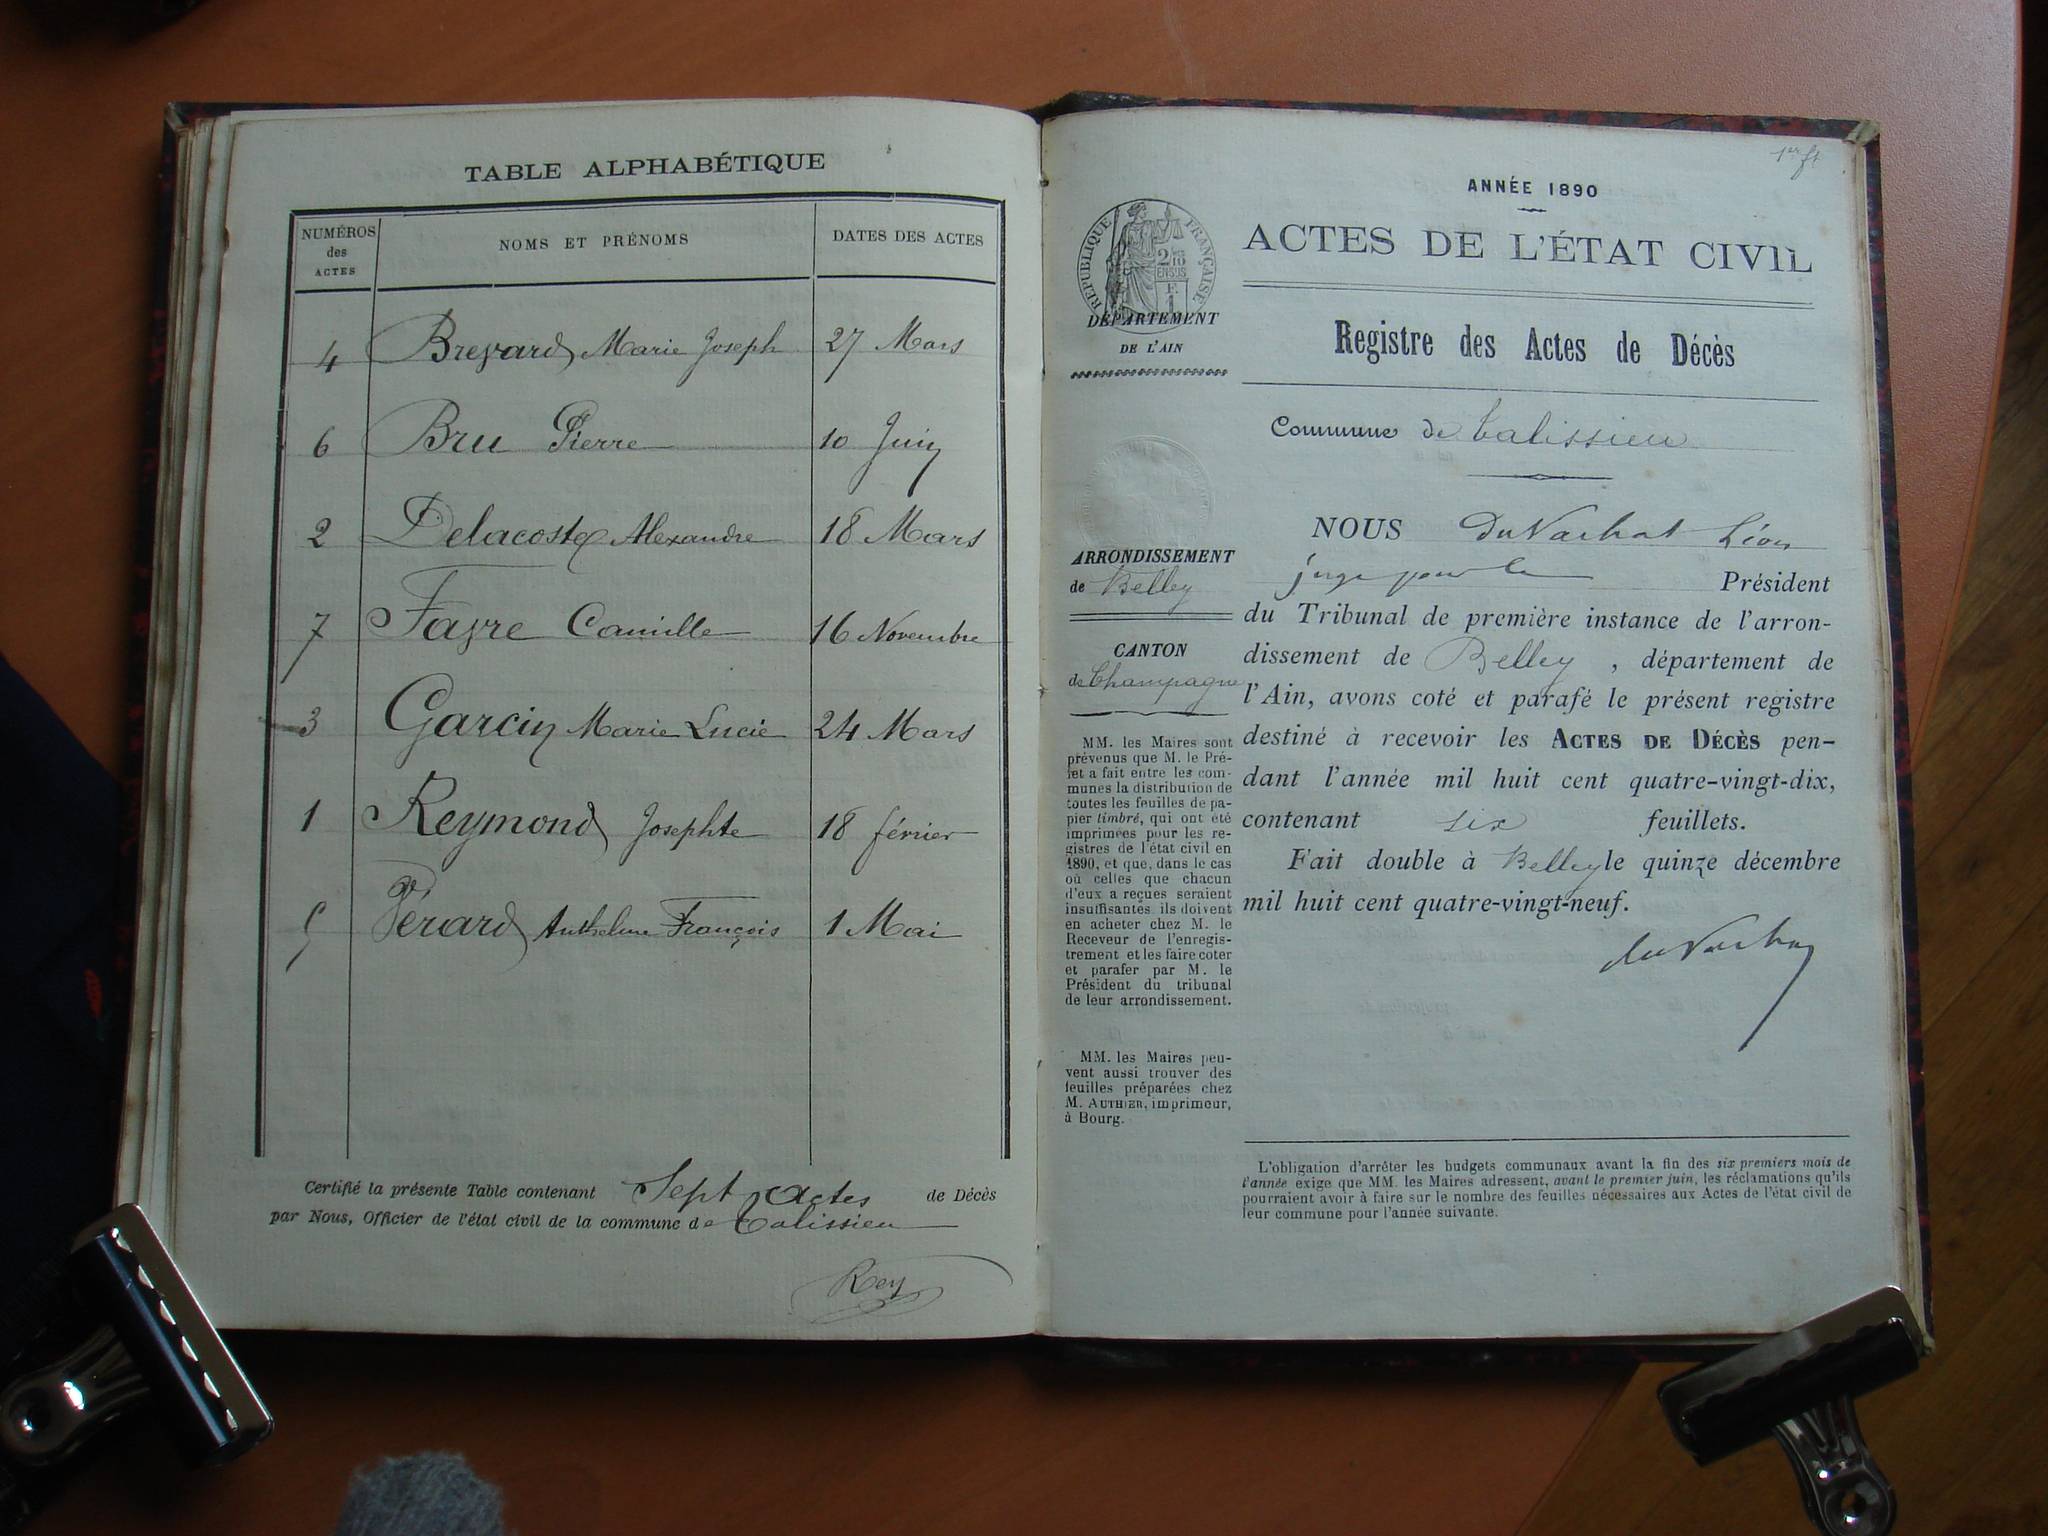 TABLE ALPHABÉTIQUE
NUMÉROS des ACTES NOMS ET PRÉNOMS DATES DES ACTES
4 Brevard Marie Joseph 27 Mars
6 Bru Pierre 10 Juin
2 Delacoste Alexandre 18 Mars
7 Favre Camille 16 Novembre
3 Garcin Marie Lucie 24 Mars
1 Reymond Josephte 18 février
5 Pérard Anthelme François 1 Mai
Certifié la présente Table contenant Sept actes de Décès
par Nous, Officier de l'état civil de la commune de Talissieu
Rey
1er ft
ANNÉE 1890
ACTES DE L'ÉTAT CIVIL
RÉPUBLIQUE FRANÇAISE
DÉPARTEMENT
DE L'AIN
Registre des Actes de Décès
Commune de Talissieu
ARRONDISSEMENT
de Belley
CANTON
de Champagne
MM. les Maires sont
prévenus que M. le Pré-
fet a fait entre les com-
munes la distribution de
toutes les feuilles de pa-
pier timbré, qui ont été
imprimées pour les re-
gistres de l'état civil en
1890, et que, dans le cas
où celles que chacun
d'eux a reçues seraient
insuffisantes, ils doivent
en acheter chez M. le
Receveur de l'enregis-
trement et les faire coter
et parafer par M. le
Président du tribunal
de leur arrondissement.
MM. les Maires peu-
vent aussi trouver des
feuilles préparées chez
M. AUTHIER, imprimeur,
à Bourg.
NOUS Léon
juge pour le Président
du Tribunal de première instance de l'arron-
dissement de Belley, département de
l'Ain, avons coté et parafé le présent registre
destiné à recevoir les ACTES DE DÉCÈS pen-
dant l'année mil huit cent quatre-vingt-dix,
contenant six feuillets.
Fait double à Belley le quinze décembre
mil huit cent quatre-vingt-neuf.
L'obligation d'arrêter les budgets communaux avant la fin des six premiers mois de
l'année exige que MM. les Maires adressent, avant le premier juin, les réclamations qu'ils
pourraient avoir à faire sur le nombre des feuilles nécessaires aux Actes de l'état civil de
leur commune pour l'année suivante.